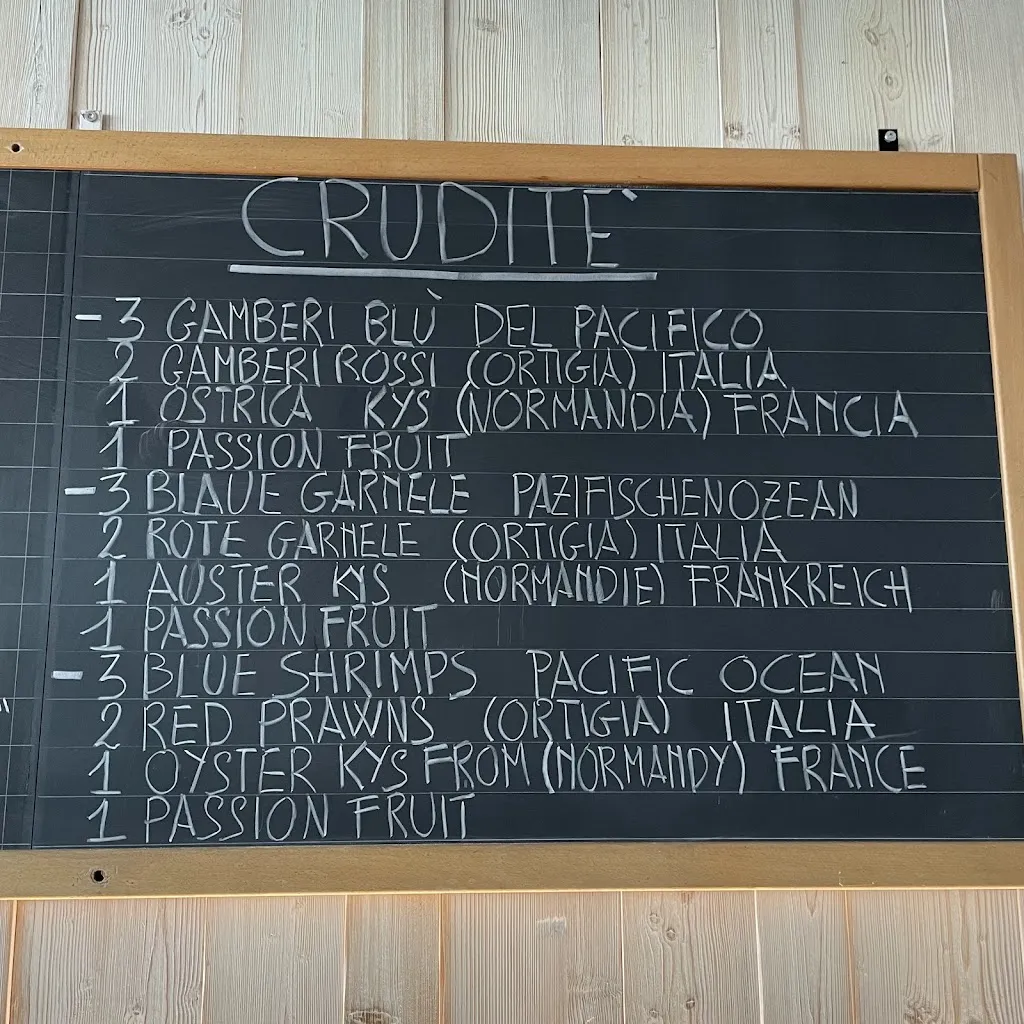 CRUDITE`
- 3 GAMBERI BLÙ DEL PACIFICO
2 GAMBERI ROSSI (ORTIGIA) ITALIA
1 OSTRICA KYS (NORMANDIA) FRANCIA
1 PASSION FRUIT
- 3 BLAUE GARNELE PAZIFISCHEN OZEAN
2 ROTE GARNELE (ORTIGIA) ITALIA
1 AUSTER KYS (NORMANDIE) FRANKREICH
1 PASSION FRUIT
- 3 BLUE SHRIMPS PACIFIC OCEAN
2 RED PRAWNS (ORTIGIA) ITALIA
1 OYSTER KYS FROM (NORMANDY) FRANCE
1 PASSION FRUIT